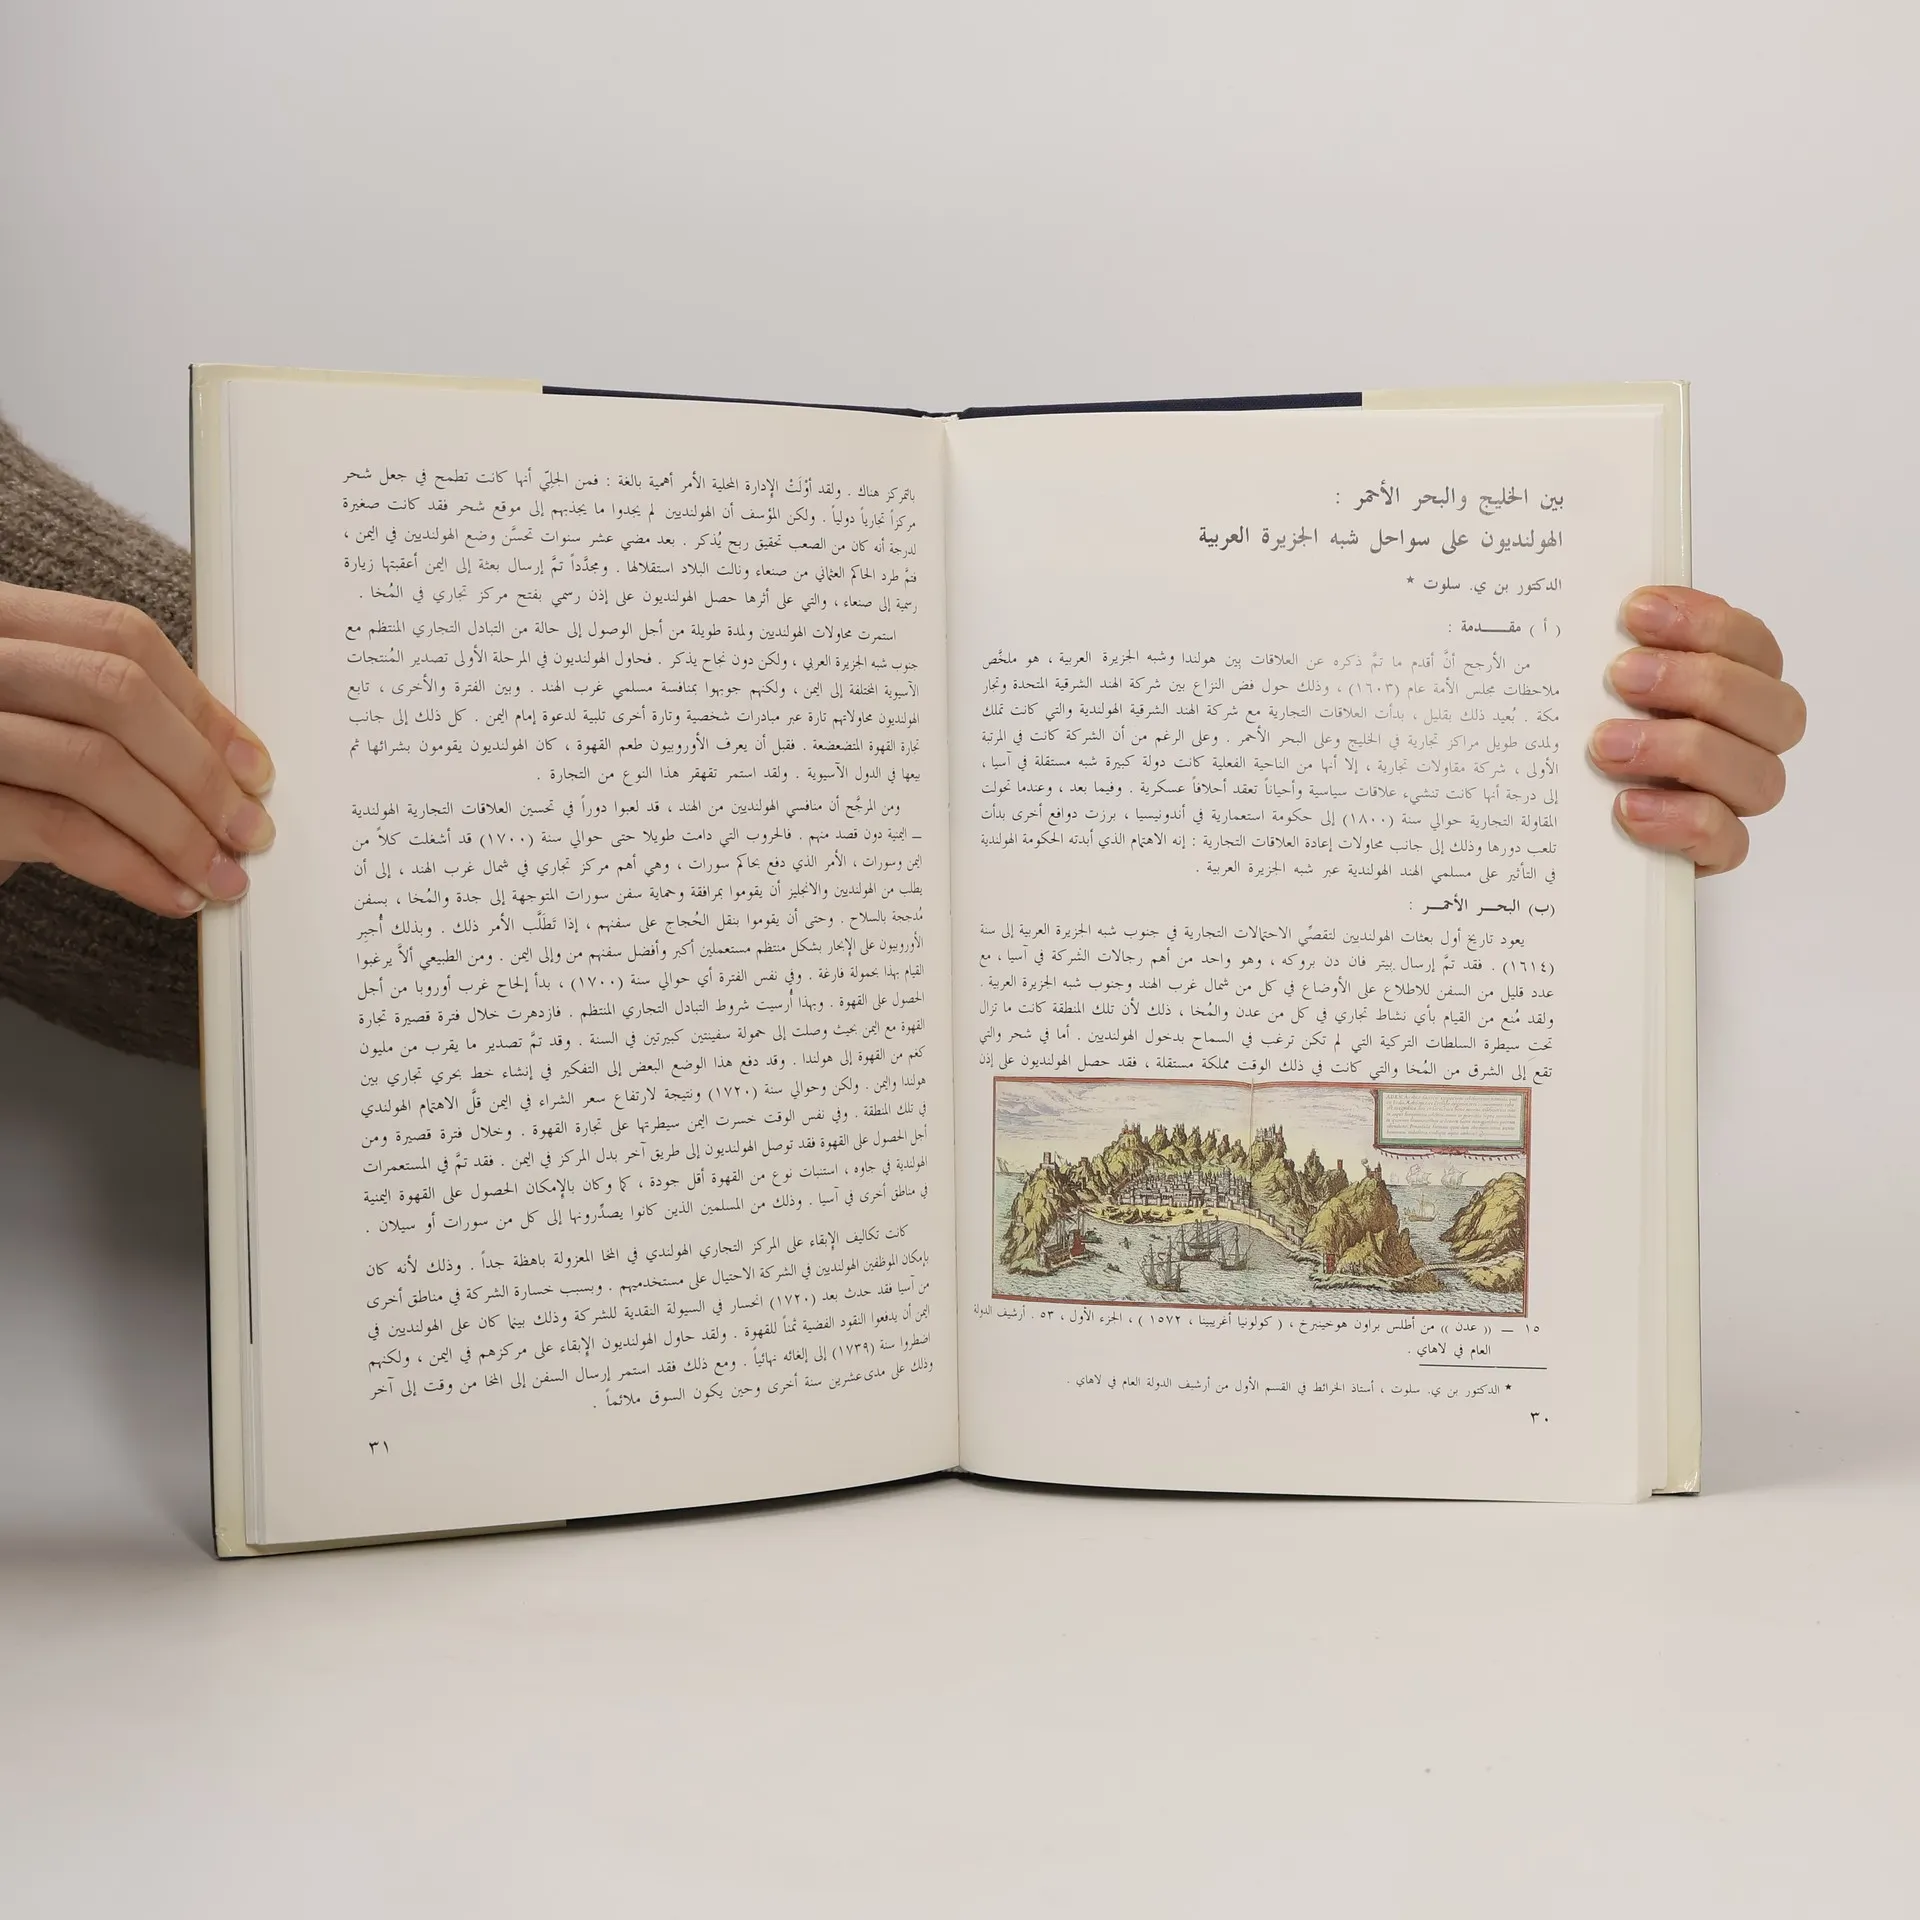 بين الخليج والبحر الأحمر :
الهولنديون على سواحل شبه الجزيرة العربية
الدكتور بن ي. سلوت *
( أ ) مقـــدمة :
من الأرجح أنَّ أقدم ما تمَّ ذكره عن العلاقات بين هولندا وشبه الجزيرة العربية ، هو ملخَّص
ملاحظات مجلس الأمة عام (١٦٠٣) ، وذلك حول فض النزاع بين شركة الهند الشرقية المتحدة وتجار
مكة . بُعيد ذلك بقليل ، بدأت العلاقات التجارية مع شركة الهند الشرقية الهولندية والتي كانت تملك
ولمدى طويل مراكز تجارية في الخليج وعلى البحر الأحمر . وعلى الرغم من أن الشركة كانت في المرتبة
الأولى ، شركة مقاولات تجارية ، إلا أنها من الناحية الفعلية كانت دولة كبيرة شبه مستقلة في آسيا ،
إلى درجة أنها كانت تنشيء علاقات سياسية وأحياناً تعقد أحلافاً عسكرية . وفيما بعد ، وعندما تحولت
المقاولة التجارية حوالي سنة (١٨٠٠) إلى حكومة استعمارية في أندونيسيا ، برزت دوافع أخرى بدأت
تلعب دورها وذلك إلى جانب محاولات إعادة العلاقات التجارية : إنه الاهتمام الذي أبدته الحكومة الهولندية
في التأثير على مسلمي الهند الهولندية عبر شبه الجزيرة العربية .
(ب) البحـــر الأحمـــر :
يعود تاريخ أول بعثات الهولنديين لتقصِّي الاحتمالات التجارية في جنوب شبه الجزيرة العربية إلى سنة
(١٦١٤) . فقد تمَّ إرسال بيتر فان دن بروكه ، وهو واحد من أهم رجالات الشركة في آسيا ، مع
عدد قليل من السفن للاطلاع على الأوضاع في كل من شمال غرب الهند وجنوب شبه الجزيرة العربية .
ولقد مُنع من القيام بأي نشاط تجاري في كل من عدن والمُخا ، ذلك لأن تلك المنطقة كانت ما تزال
تحت سيطرة السلطات التركية التي لم تكن ترغب في السماح بدخول الهولنديين . أما في شحر والتي
تقع إلى الشرق من المُخا والتي كانت في ذلك الوقت مملكة مستقلة ، فقد حصل الهولنديون على إذن
١٥ — (( عدن )) من أطلس براون هوخينبرخ ، ( كولونيا أغريبينا ، ١٥٧٢ ) ، الجزء الأول ، ٥٣ . أرشيف الدولة
العام في لاهاي .
* الدكتور بن ي. سلوت ، أستاذ الخرائط في القسم الأول من أرشيف الدولة العام في لاهاي .
٣٠
بالتمركز هناك . ولقد أوْلَتْ الإدارة المحلية الأمر أهمية بالغة : فمن الجَلِيّ أنها كانت تطمح في جعل شحر
مركزاً تجارياً دولياً . ولكن المؤسف أن الهولنديين لم يجدوا ما يجذبهم إلى موقع شحر فقد كانت صغيرة
لدرجة أنه كان من الصعب تحقيق ربح يُذكر . بعد مضي عشر سنوات تحسَّن وضع الهولنديين في اليمن ،
فتمَّ طرد الحاكم العثماني من صنعاء ونالت البلاد استقلالها . ومجدَّداً تمَّ إرسال بعثة إلى اليمن أعقبتها زيارة
رسمية إلى صنعاء ، والتي على أثرها حصل الهولنديون على إذن رسمي بفتح مركز تجاري في المُخا .
استمرت محاولات الهولنديين ولمدة طويلة من أجل الوصول إلى حالة من التبادل التجاري المنتظم مع
جنوب شبه الجزيرة العربي ، ولكن دون نجاح يذكر . فحاول الهولنديون في المرحلة الأولى تصدير المُنتجات
الآسيوية المختلفة إلى اليمن ، ولكنهم جوبهوا بمنافسة مسلمي غرب الهند . وبين الفترة والأخرى ، تابع
الهولنديون محاولاتهم تارة عبر مبادرات شخصية وتارة أخرى تلبية لدعوة إمام اليمن . كل ذلك إلى جانب
تجارة القهوة المتضعضعة . فقبل أن يعرف الأوروبيون طعم القهوة ، كان الهولنديون يقومون بشرائها ثم
بيعها في الدول الآسيوية . ولقد استمر تقهقر هذا النوع من التجارة .
ومن المرجَّح أن منافسي الهولنديين من الهند ، قد لعبوا دوراً في تحسين العلاقات التجارية الهولندية
— اليمنية دون قصد منهم . فالحروب التي دامت طويلا حتى حوالي سنة (١٧٠٠) قد أشغلت كلاً من
اليمن وسورات ، الأمر الذي دفع بحاكم سورات ، وهي أهم مركز تجاري في شمال غرب الهند ، إلى أن
يطلب من الهولنديين والانجليز أن يقوموا بمرافقة وحماية سفن سورات المتوجهة إلى جدة والمُخا ، بسفن
مُدججة بالسلاح . وحتى أن يقوموا بنقل الحُجاج على سفنهم ، إذا تَطَلَّب الأمر ذلك . وبذلك أُجبِر
الأوروبيون على الإبحار بشكل منتظم مستعملين أكبر وأفضل سفنهم من وإلى اليمن . ومن الطبيعي ألاَّ يرغبوا
القيام بهذا بحمولة فارغة . وفي نفس الفترة أي حوالي سنة (١٧٠٠) ، بدأ إلحاح غرب أوروبا من أجل
الحصول على القهوة . وبهذا أُرسيت شروط التبادل التجاري المنتظم . فازدهرت خلال فترة قصيرة تجارة
القهوة مع اليمن بحيث وصلت إلى حمولة سفينتين كبيرتين في السنة . وقد تمَّ تصدير ما يقرب من مليون
كغم من القهوة إلى هولندا . وقد دفع هذا الوضع البعض إلى التفكير في إنشاء خط بحري تجاري بين
هولندا واليمن . ولكن وحوالي سنة (١٧٢٠) ونتيجة لارتفاع سعر الشراء في اليمن قلَّ الاهتمام الهولندي
في تلك المنطقة . وفي نفس الوقت خسرت اليمن سيطرتها على تجارة القهوة . وخلال فترة قصيرة ومن
أجل الحصول على القهوة فقد توصل الهولنديون إلى طريق آخر بدل المركز في اليمن . فقد تمَّ في المستعمرات
الهولندية في جاوه ، استنبات نوع من القهوة أقل جودة ، كما وكان بالإمكان الحصول على القهوة اليمنية
في مناطق أخرى في آسيا . وذلك من المسلمين الذين كانوا يصدِّرونها إلى كل من سورات أو سيلان .
كانت تكاليف الإبقاء على المركز التجاري الهولندي في المخا المعزولة باهظة جداً . وذلك لأنه كان
بإمكان الموظفين الهولنديين في الشركة الاحتيال على مستخدميهم . وبسبب خسارة الشركة في مناطق أخرى
من آسيا فقد حدث بعد (١٧٢٠) انحسار في السيولة النقدية للشركة وذلك بينما كان على الهولنديين في
اليمن أن يدفعوا النقود الفضية ثمناً للقهوة . ولقد حاول الهولنديون الإبقاء على مركزهم في اليمن ، ولكنهم
اضطروا سنة (١٧٣٩) إلى إلغائه نهائياً . ومع ذلك فقد استمر إرسال السفن إلى المخا من وقت إلى آخر
وذلك على مدى عشرين سنة أخرى وحين يكون السوق ملائماً .
٣١